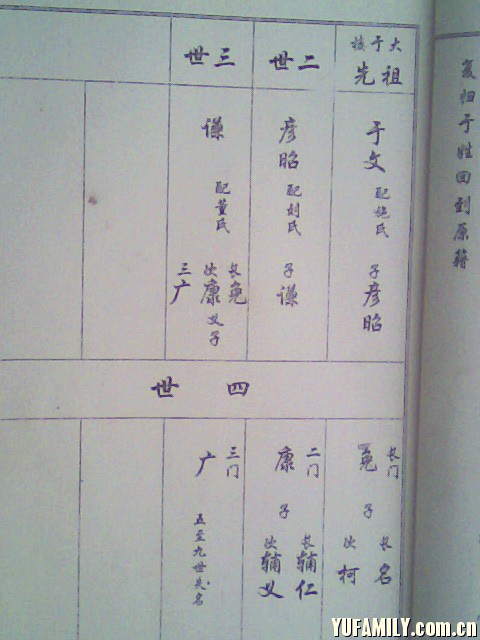 复归于姓回到原籍
大于核
祖先
于文 配施氏 子彦昭
二世
彦昭 配刘氏 子谦
三世
谦 配董氏 长冕 次康义子 三广
四世
长门 冕 子 长名 次柯
二门 康 子 长辅仁 次辅义
三门 广 五至九世失名
YUFAMILY.com.cn